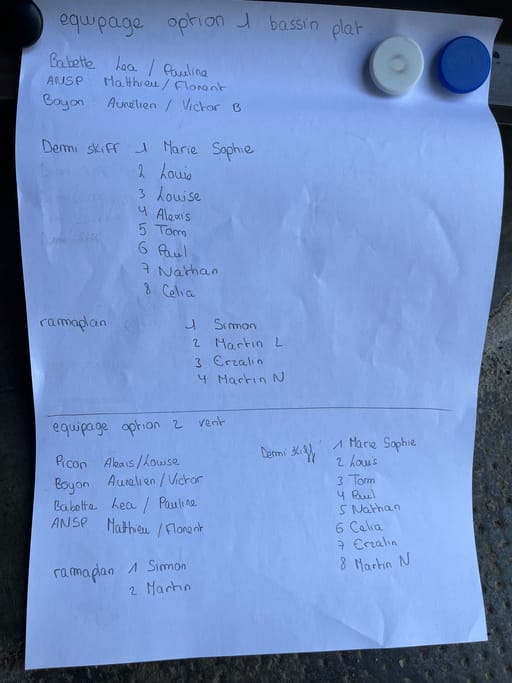 equipage option 1 bassin plat
Babette Lea / Pauline
ANSP Matthieu / Florent
Boyon Aurélien / Victor B
Demi skiff 1 Marie Sophie
2 Louis
3 Louise
4 Alexis
5 Tom
6 Paul
7 Nathan
8 Celia
ramaplan 1 Simon
2 Martin L
3 Erzalin
4 Martin N
equipage option 2 vent
Picon Alexis / Louise
Boyon Aurelien / Victor
Babette Lea / Pauline
ANSP Matthieu / Florent
ramaplan 1 Simon
2 Martin
Demi skiff 1 Marie Sophie
2 Louis
3 Tom
4 Paul
5 Nathan
6 Celia
7 Erzalin
8 Martin N